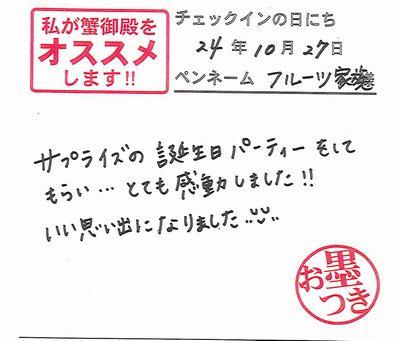 私が蟹御殿を
オススメ
します!!
チェックインの日にち
24年10月27日
ペンネーム フルーツ家族様
サプライズの誕生日パーティーをして
もらい…とても感動しました!!
いい思い出になりました
お墨つき